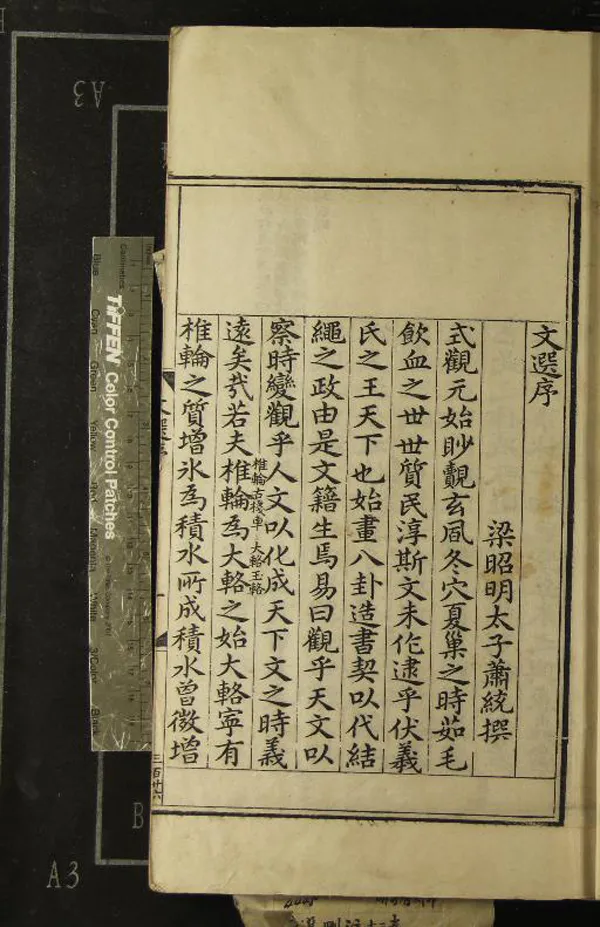 文選序
梁昭明太子蕭統撰
式觀元始眇覿玄風冬穴夏巢之時茹毛
飲血之世世質民淳斯文未作逮乎伏羲
氏之王天下也始畫八卦造書契以代結
繩之政由是文籍生焉易曰觀乎天文以
察時變觀乎人文以化成天下文之時義
遠矣哉若夫椎輪為大輅之始大輅寧有
椎輪古棧車 大輅玉輅
椎輪之質增冰為積水所成積水曾微增
三百廿六
TIFFEN Color Control Patches
Centimetres
Blue
Cyan
Green
Yellow
Red
Magenta
White
3/Color
Black
A3
A3
B